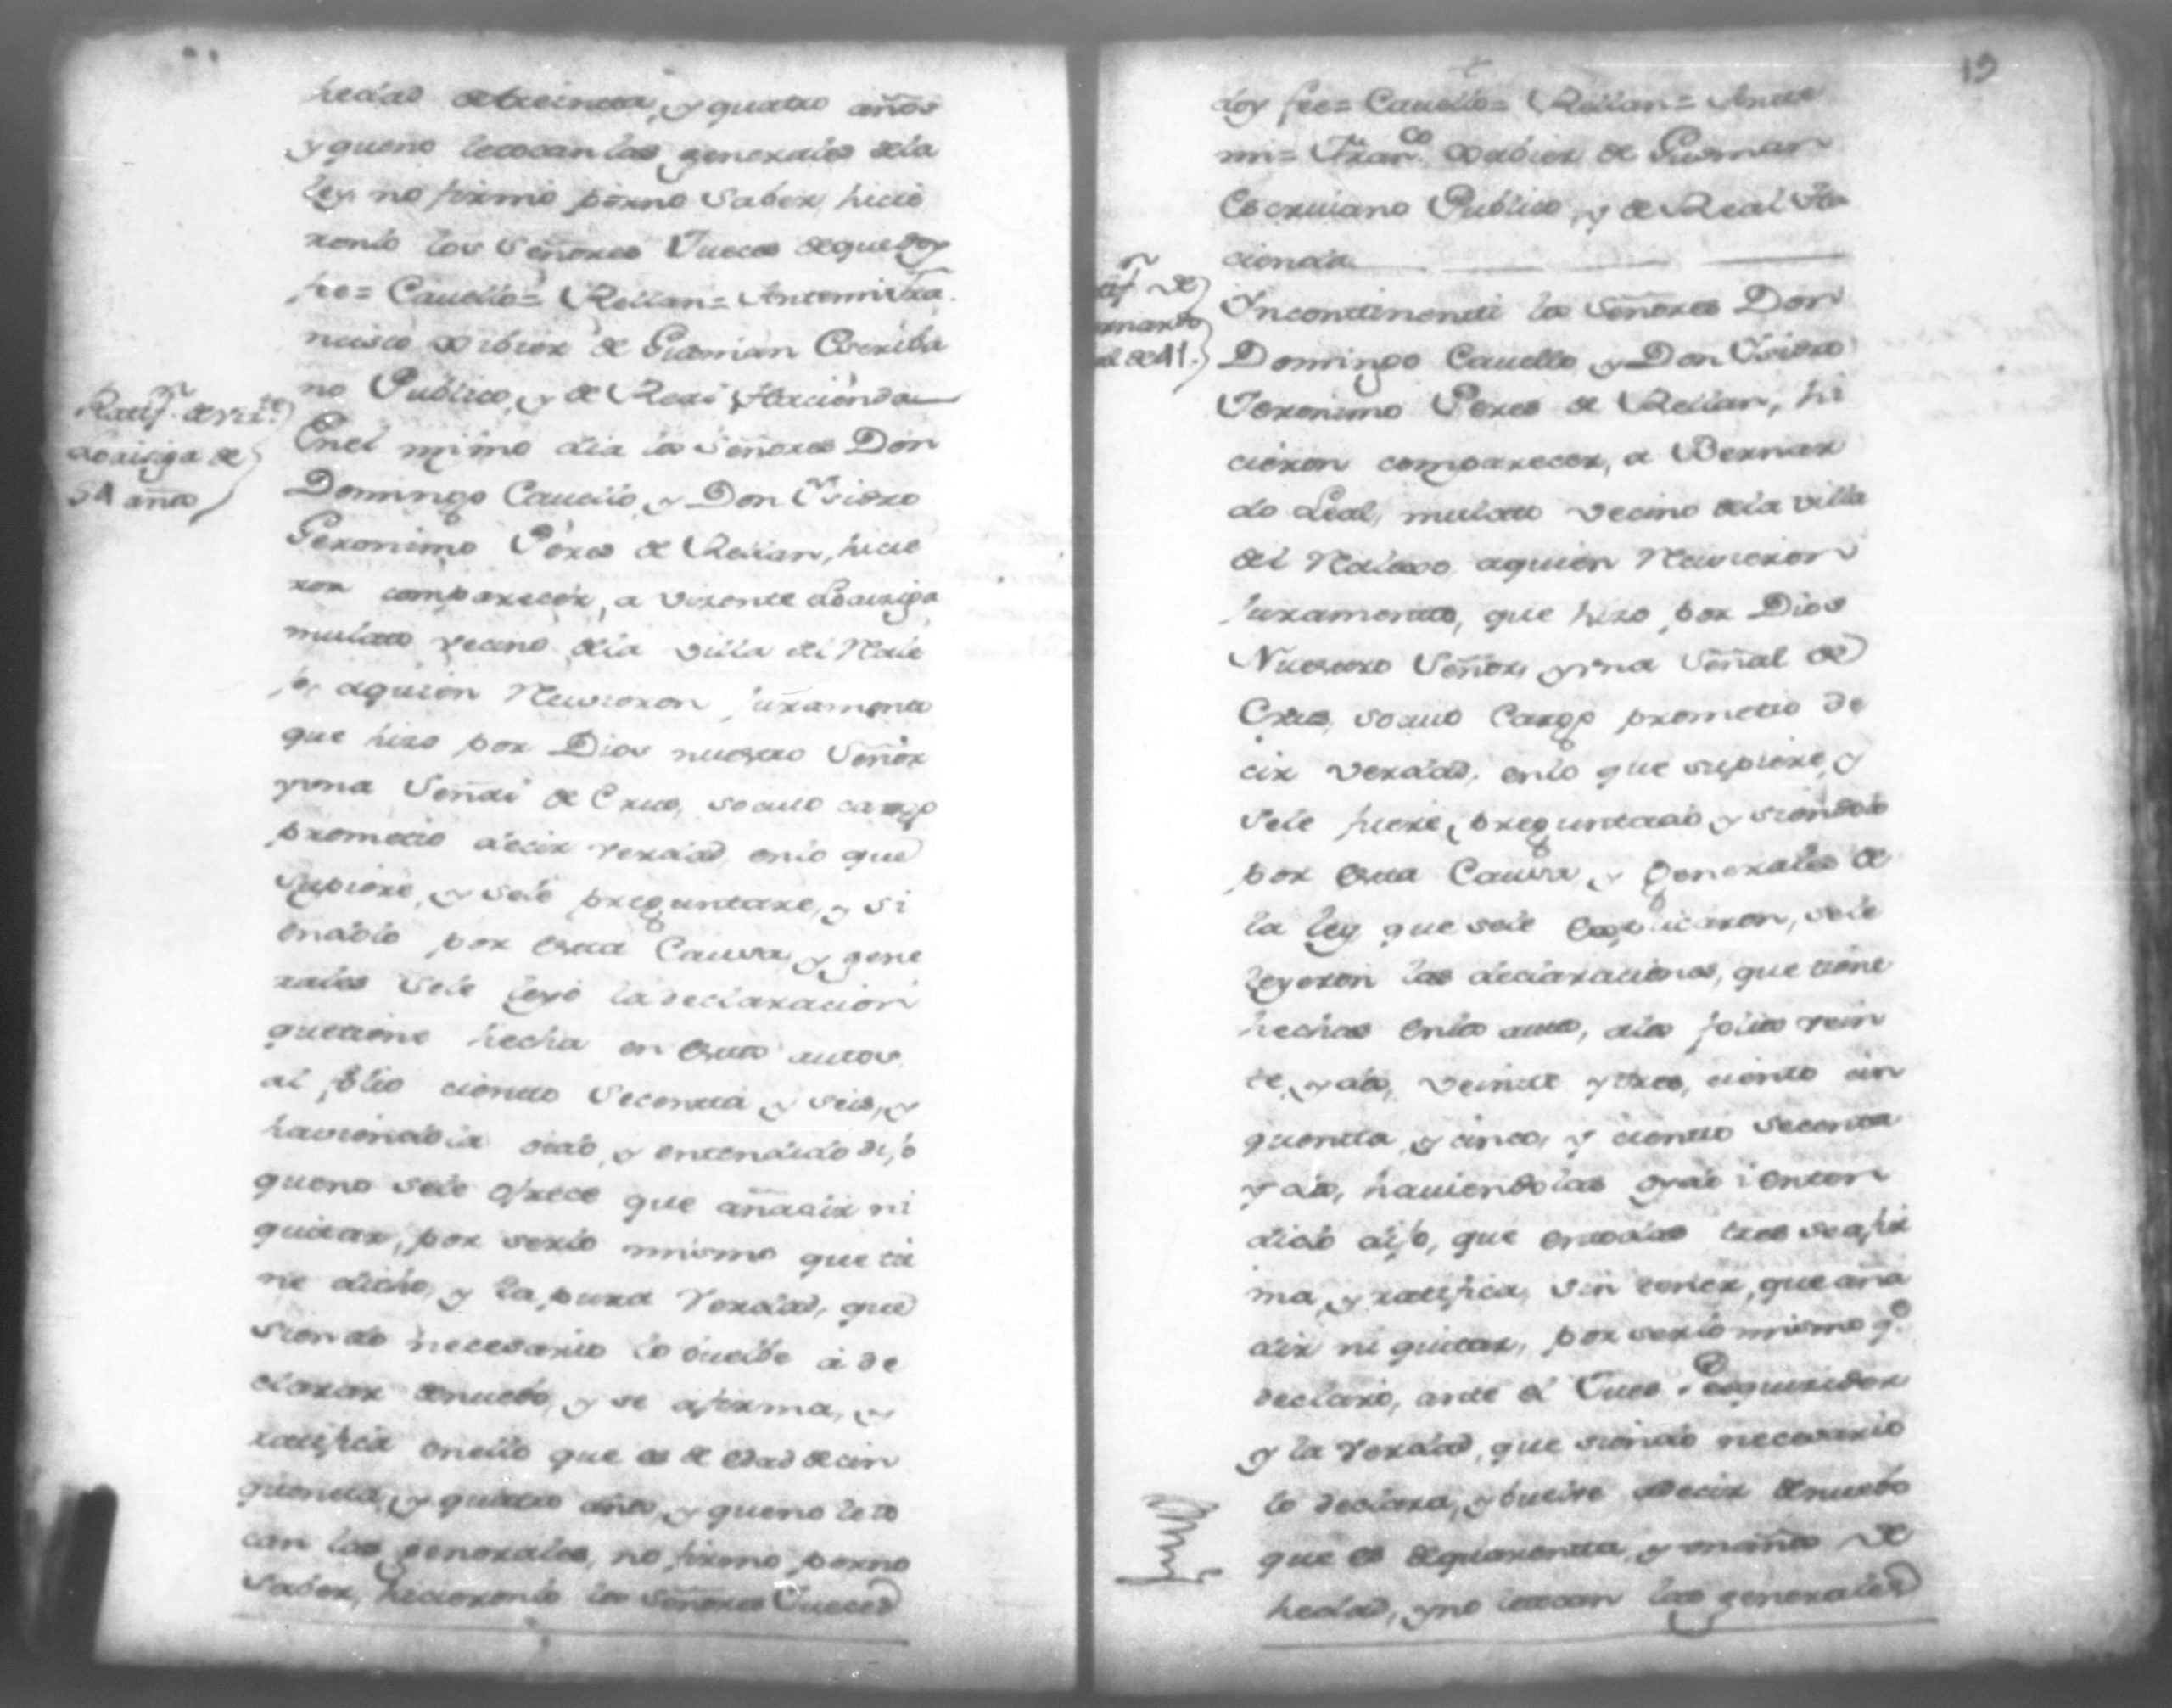 hedad de treinta, y quatro años
y queno letocan las generales dela
ley, no firmó porno Saver, hicie
ronlo los Señores Jueces dequedoy
fee= Cauello= Rellan= Antemi Fra.
ncisco de Gusmàn Escriba
no Publico, y de Real Hacienda
Ratif.n de
de
54 años
Enel mismo dia los Señores Don
Domingo Cauello, y Don Ysidro
Geronimo Pères de Rellan, hicie
ron comparecèr, a Visente
mulato vecino dela villa del Nale
jo, aquien Reuvieron juramento
que hizo por Dios nuestro Señor
yuna Señal de Crus, socuio cargo
prometio decir verdad, enlo que
Supiere, y sele preguntare, y si
endolo por esta Causa, y gene
rales Sele leyò la declaracion
quetiene hecha en estos autos
al folio ciento Secenta y seis, y
haviendola oido, y entendido dijo
queno sele ofrece que añadir ni
quitar, por serlo mismo que tie
ne dicho, y la pura Verdad, que
siendo necesario lo buelbe à de
clarar denuebo, y se afirma, y
ratifica enello que es de edad decin
quenta, y quatro años, y queno leto
can las generales, no firmò porno
Saber, hicieronlo los Señores Jueces
19
doy fee= Cauello= Rellan= Ante
mi= Fran.co de Gusman
Escriuano Publico, y de Real Ha
cienda
de
al de 41.
Yncontinenti los Señores Don
Domingo Cauello y Don Ysidro
Jeronimo Peres de Rellan, hi
cieron comparecer, a Bernar
do Leal, mulato vecino dela villa
del Nalexo aquien Reuvieron
juramento, que hizo por Dios
Nuestro Señor, yuna Señal de
Crus, socuio Cargo prometio de
cir verdad, enlo que supiere, y
Sele fuere, preguntado y siendolo
por esta Causa, y Generales de
la ley que sele explicaron, sele
leyeron las declaraciones, que tiene
hechas enlos autos, alos folios vein
te, y dos, veinte ytres, ciento cin
quenta, y cinco, y ciento Secenta
y dos, haviendolas oydo i enten
dido dijo, que entodas tres seafir
ma, y ratifica, sin tener, que aña
dir ni quitar, por serlo mismo q.e
declarò, ante el Jues Pesquisidor
y la Verdad, que siendo necesario
lo declara, y buelve adecir denuebo
que es dequarenta, y unaños de
hedad, yno letocan las generales